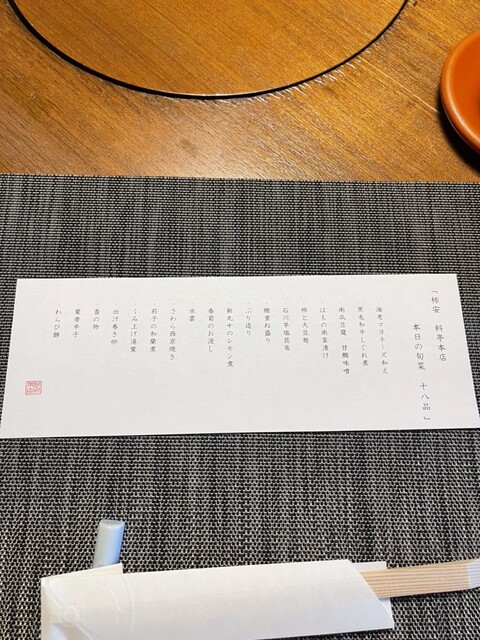 「柿安　料亭本店
本日の旬菜　十八品」
海老マヨネーズ和え
黒毛和牛しぐれ煮
南瓜豆腐　甘鯛味噌
はもの南蛮漬け
柿と大豆麹
石川芋塩昆布
鰹重ね盛り
ぶり造り
新丸十のレモン煮
春菊のお浸し
水雲
さわら西京焼き
茄子の和蘭煮
くみ上げ湯葉
出汁巻き卵
香の物
葉唐辛子
わらび餅